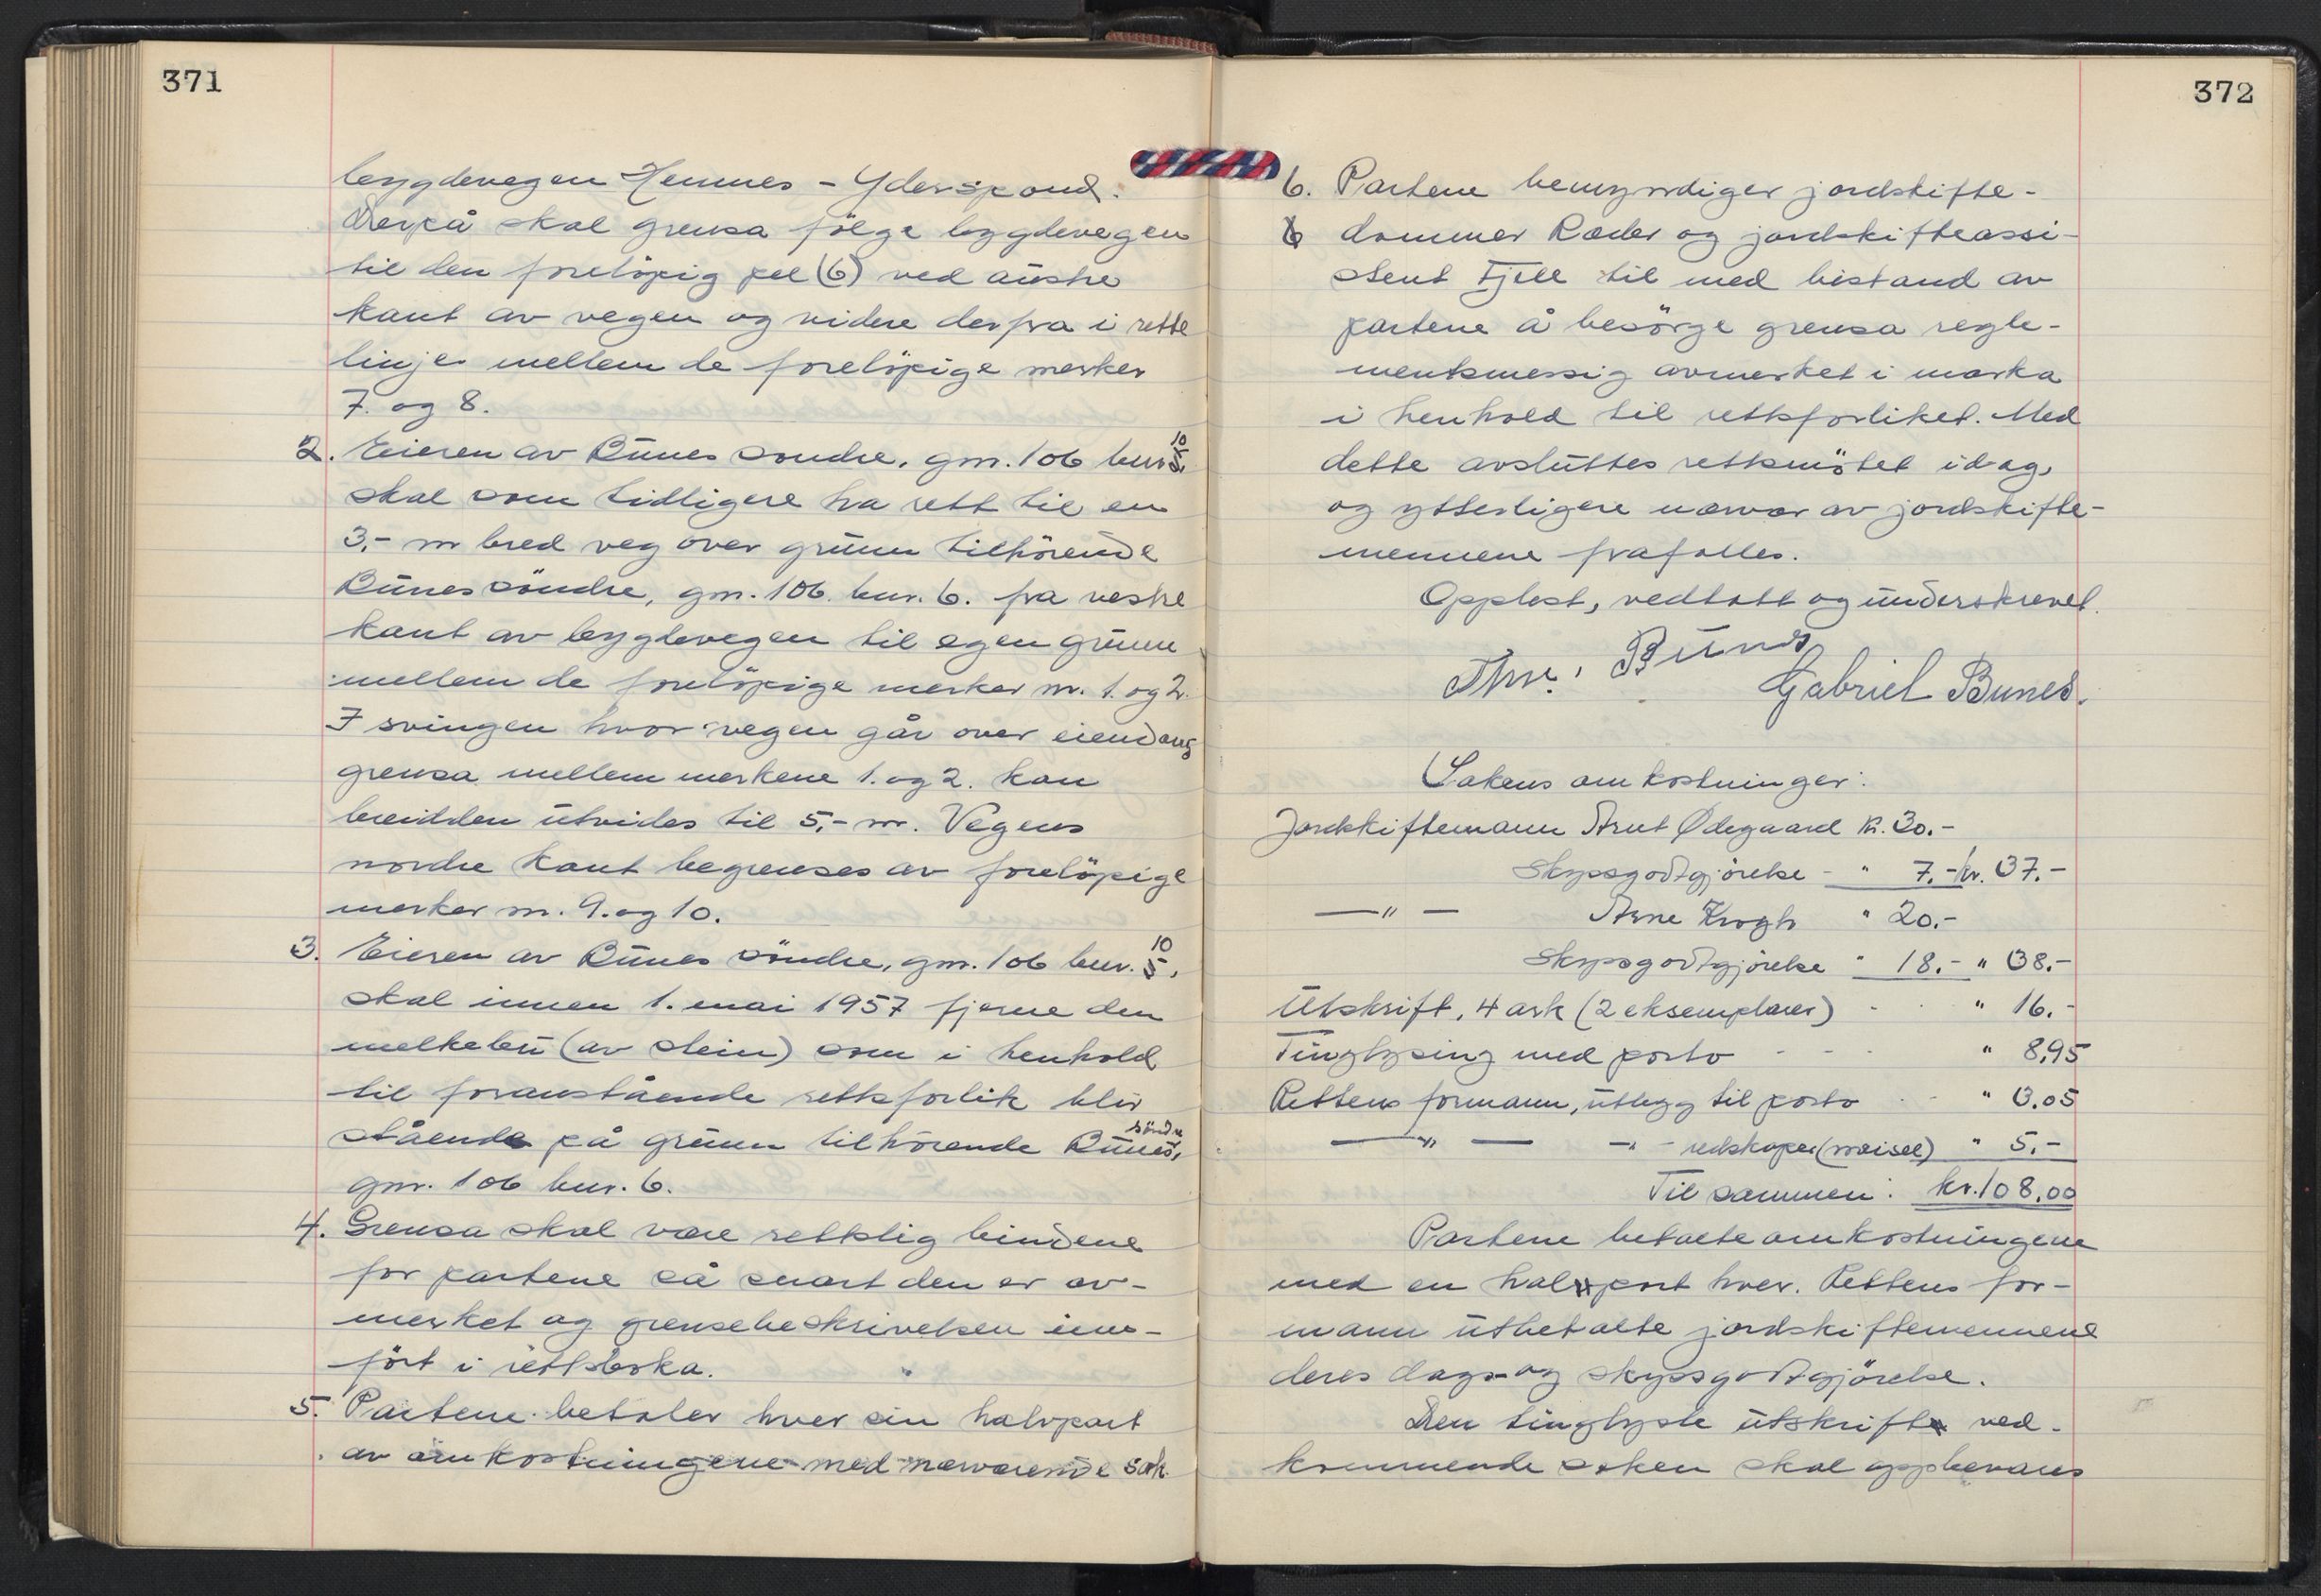 371
bygdevegen Hennes - Yderspond.
Derpå skal grensa følge bygdevegen
til den foreløpig pel (6) ved austre
kant av vegen og videre derfra i rette
linjer mellem de foreløpige merker
7. og 8.
2. Eieren av Bunes søndre, gnr. 106 bnr. 10
skal som tidligere ha rett til en
3,- m bred veg over grunn tilhørende
Bunes søndre, gnr. 106 bnr. 6. fra vestre
kant av bygdevegen til egen grunn
mellem de foreløpige merker nr. 1. og 2.
I svingen hvor vegen går over eiendoms
grensa mellem merkene 1. og 2. kan
breidden utvides til 5,- m. Vegens
nordre kant begrenses av foreløpige
merker nr. 9. og 10.
3. Eieren av Bunes søndre, gnr. 106 bnr. 10,
skal innen 1. mai 1957 fjerne den
melkebu (av stein) som i henhold
til foranstående rettsforlik blir
stående på grunn tilhørende Bunes søndre,
gnr. 106 bnr. 6.
4. Grensa skal være rettslig bindene
for partene så snart den er av-
merket og grensebeskrivelsen inn-
ført i rettsboka.
5. Partene betaler hver sin halvpart
av omkostningene med nærværende sak.
372
6. Partene bemyndiger jordskifte-
dommer Ræder og jordskifteassi-
stent Fjell til med bistand av
partene å besørge grensa regle-
mentsmessig avmerket i marka
i henhold til rettsforliket. Med
dette avsluttes rettsmøtet idag,
og ytterligere nærvær av jordskifte-
mennene frafalles.
Opplest, vedtatt og underskrevet.
Thv. Bunes
Gabriel Bunes.
Sakens omkostninger:
Jordskiftemann Arnt Ødegaard kr. 30.-
Skyssgodtgjørelse - " 7.- kr. 37.-
—"— Arne Krogh " 20.-
Skyssgodtgjørelse " 18.- " 38.-
Utskrift, 4 ark (2 eksemplarer) - " 16.-
Tinglysing med porto - - - " 8,95
Rettens formann, utlegg til porto - - " 3.05
—"— —"- redskaper (meisel) " 5.-
Til sammen: kr. 108,00
Partene betalte omkostningene
med en halvpart hver. Rettens for-
mann utbetalte jordskiftemennene
deres dags- og skyssgodtgjørelse.
Den tinglyste utskrift ved-
kommende saken skal oppbevares